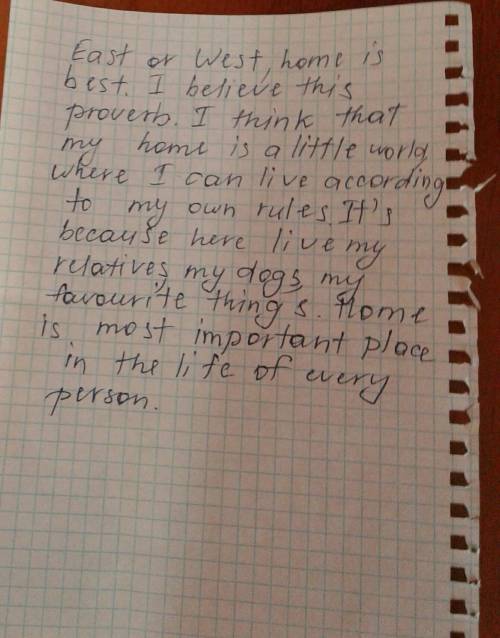 East or West, home is
best. I believe this
proverb. I think that
my home is a little world,
where I can live according
to my own rules. It's
because here live my
relatives, my dogs, my
favourite things. Home
is most important place
in the life of every
person.